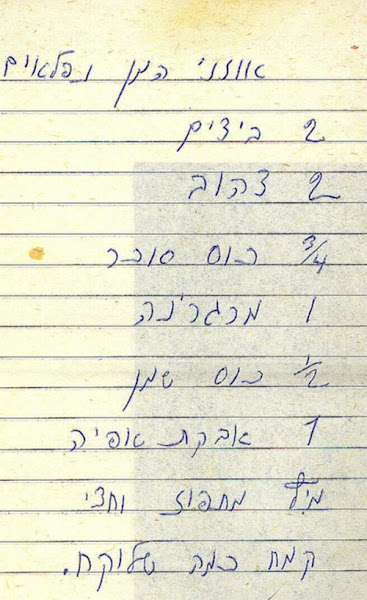 אוזני המן נפלאים
2 ביצים
2 צהוב
3/4 כוס סוכר
1 מרגרינה
1/2 כוס שמן
1 אבקת אופיה
מיץ מתפוז וחצי
קמח כמה שלוקח.